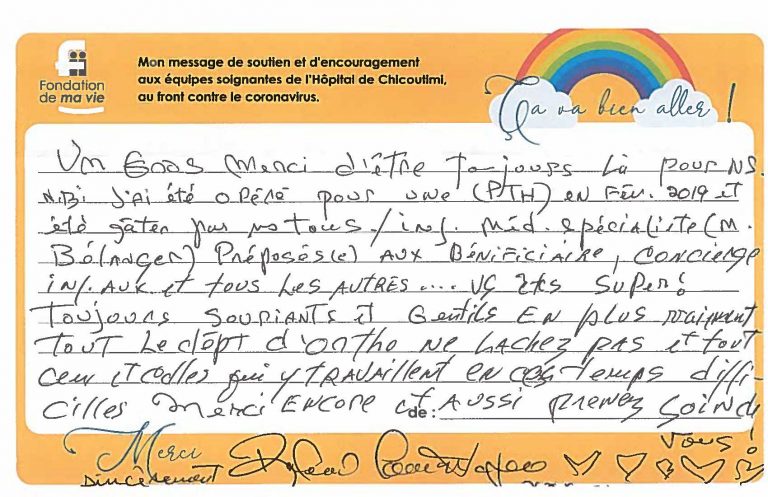 Fondation
de ma vie
Mon message de soutien et d'encouragement
aux équipes soignantes de l'Hôpital de Chicoutimi,
au front contre le coronavirus.
Ça va bien aller !
Un Gros Merci d'être toujours là pour NS.
N.B: J'ai été opéré pour une (PTH) en Fév. 2019 et
été gâter par tous / inf. Méd. spécialiste (M.
Bélanger) Préposés(e) aux Bénificiaire, concierge
inf. aux et tous les autres .... vs êtes super!
Toujours souriants et Gentils en plus vraiment
tout le dépt d'ortho ne lachez pas et tout
ceux et celles qui y travaillent en ces temps diffi-
cilles Merci encore et de: aussi prenez soin de
vous!
Merci
sincèrement